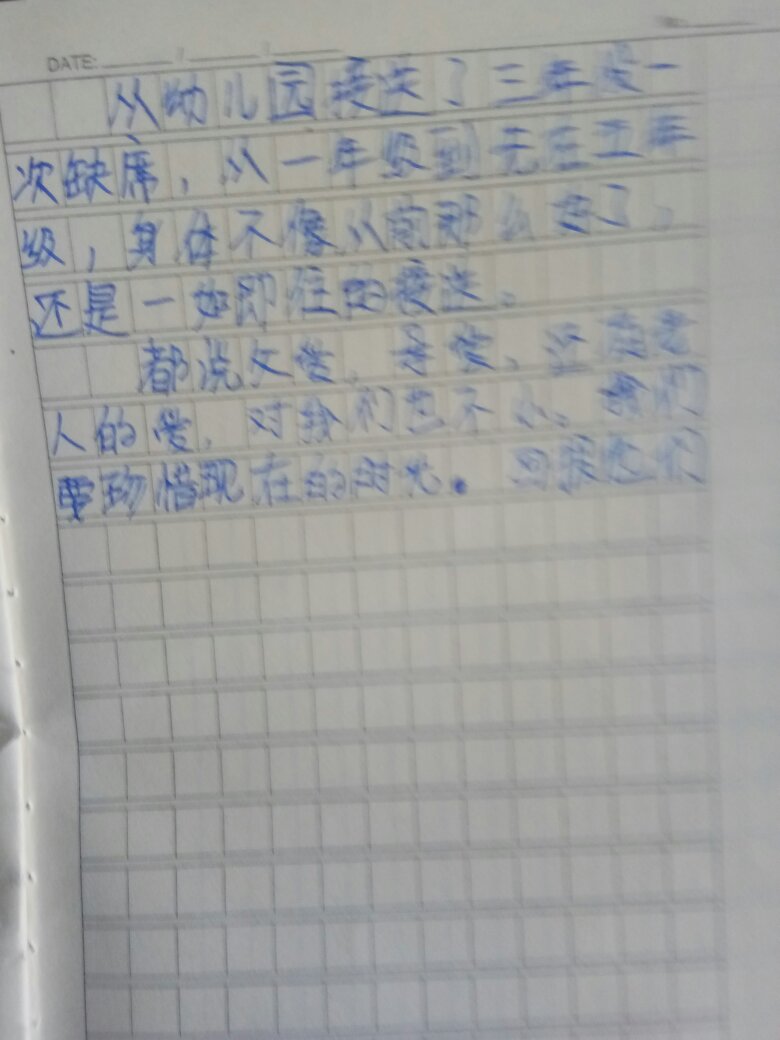 DATE:
从幼儿园接送了三年没一
次缺席，从一年级到五年
级，身体不像从前那么好了。
还是一如即往的接送。
都说父爱，母爱，老
人的爱，对我们也不小。我们
要珍惜现在的时光。回报他们